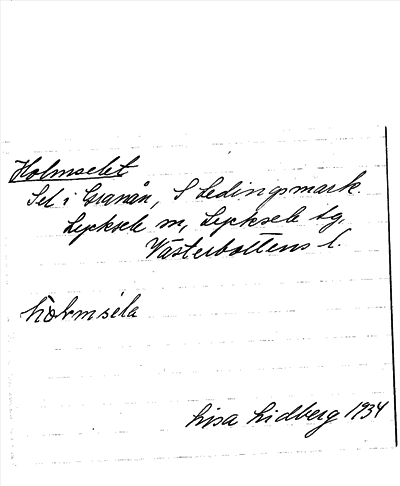 Holmselet
Sel i Granån, S Ledingsmark.
Lycksele m, Lycksele tg,
Västerbottens l.
hòlmsèla
Lisa Lidberg 1934